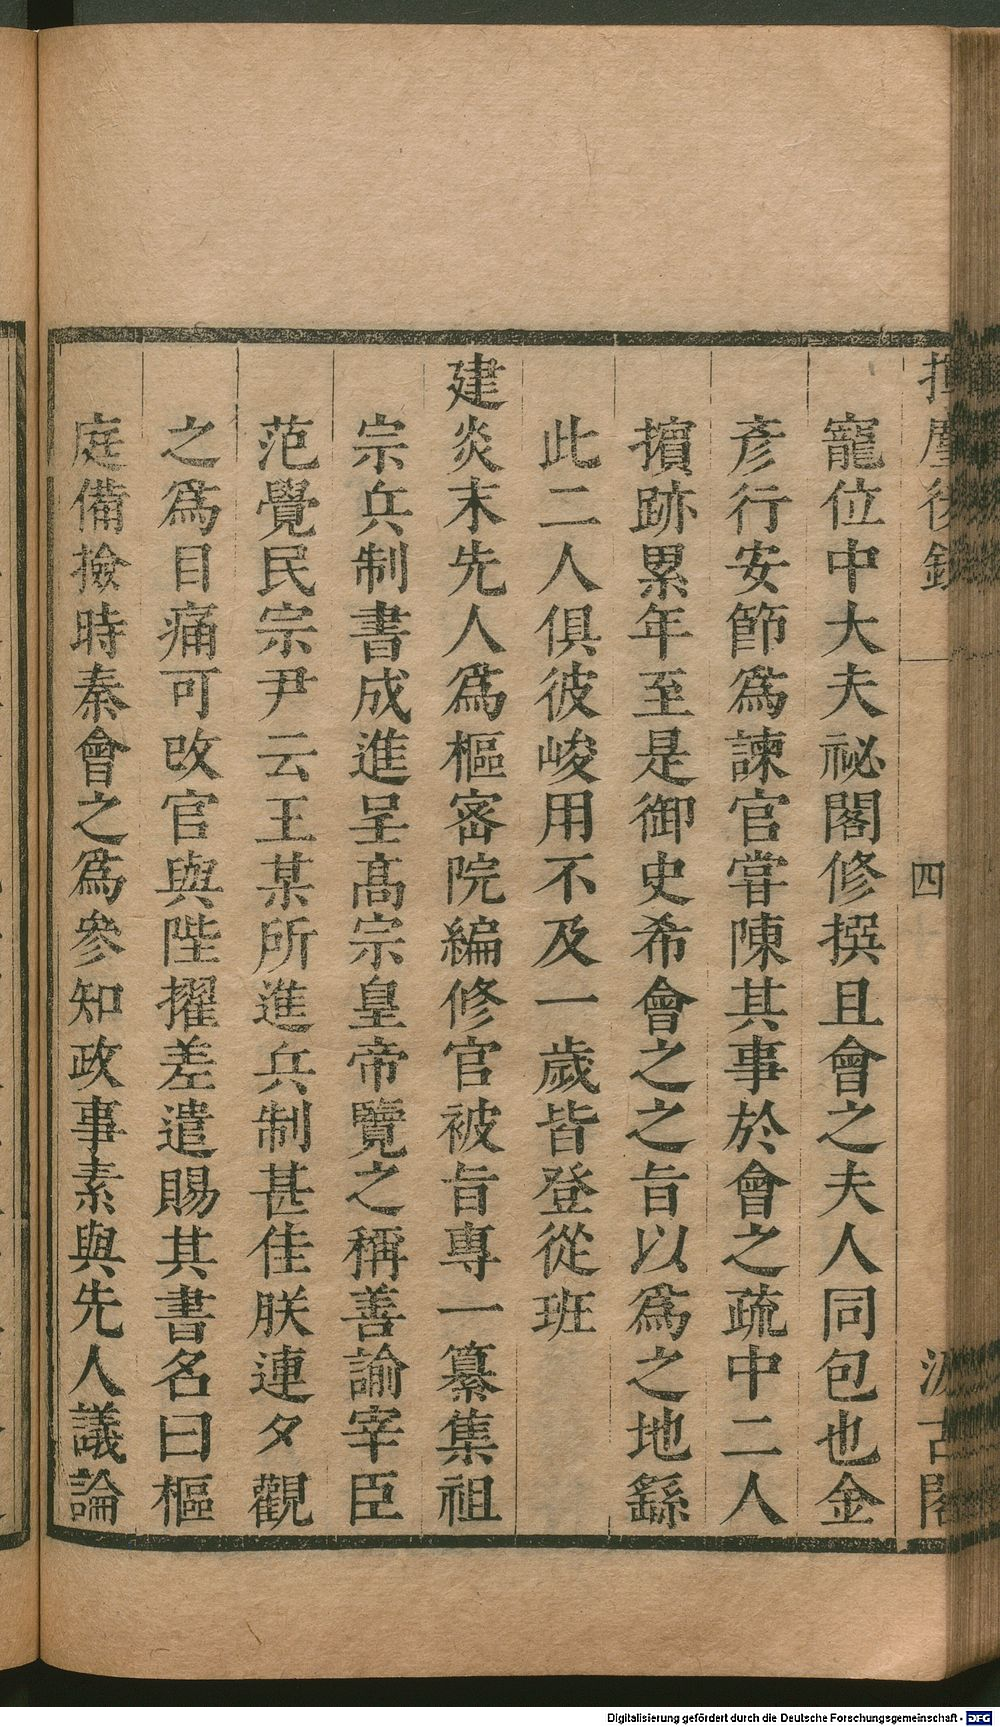 揮麈後錄
四
汲古閣
寵位中大夫祕閣修撰且會之夫人同包也金
彥行安節爲諫官嘗陳其事於會之疏中二人
擯跡累年至是御史希會之之旨以爲之地繇
此二人俱彼峻用不及一歲皆登從班
建炎末先人爲樞密院編修官被旨專一纂集祖
宗兵制書成進呈高宗皇帝覽之稱善諭宰臣
范覺民宗尹云王某所進兵制甚佳朕連夕觀
之爲目痛可改官與陛擢差遣賜其書名曰樞
庭備撿時秦會之爲參知政事素與先人議論
Digitalisierung gefördert durch die Deutsche Forschungsgemeinschaft - DFG